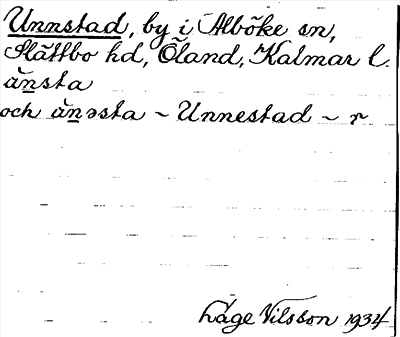 Unnstad, by i Alböke sn,
Slättbo hd, Öland, Kalmar l.
ǎnsta
och ǎnəsta ~ Unnestad ~ r
Låge Nilsson 1934